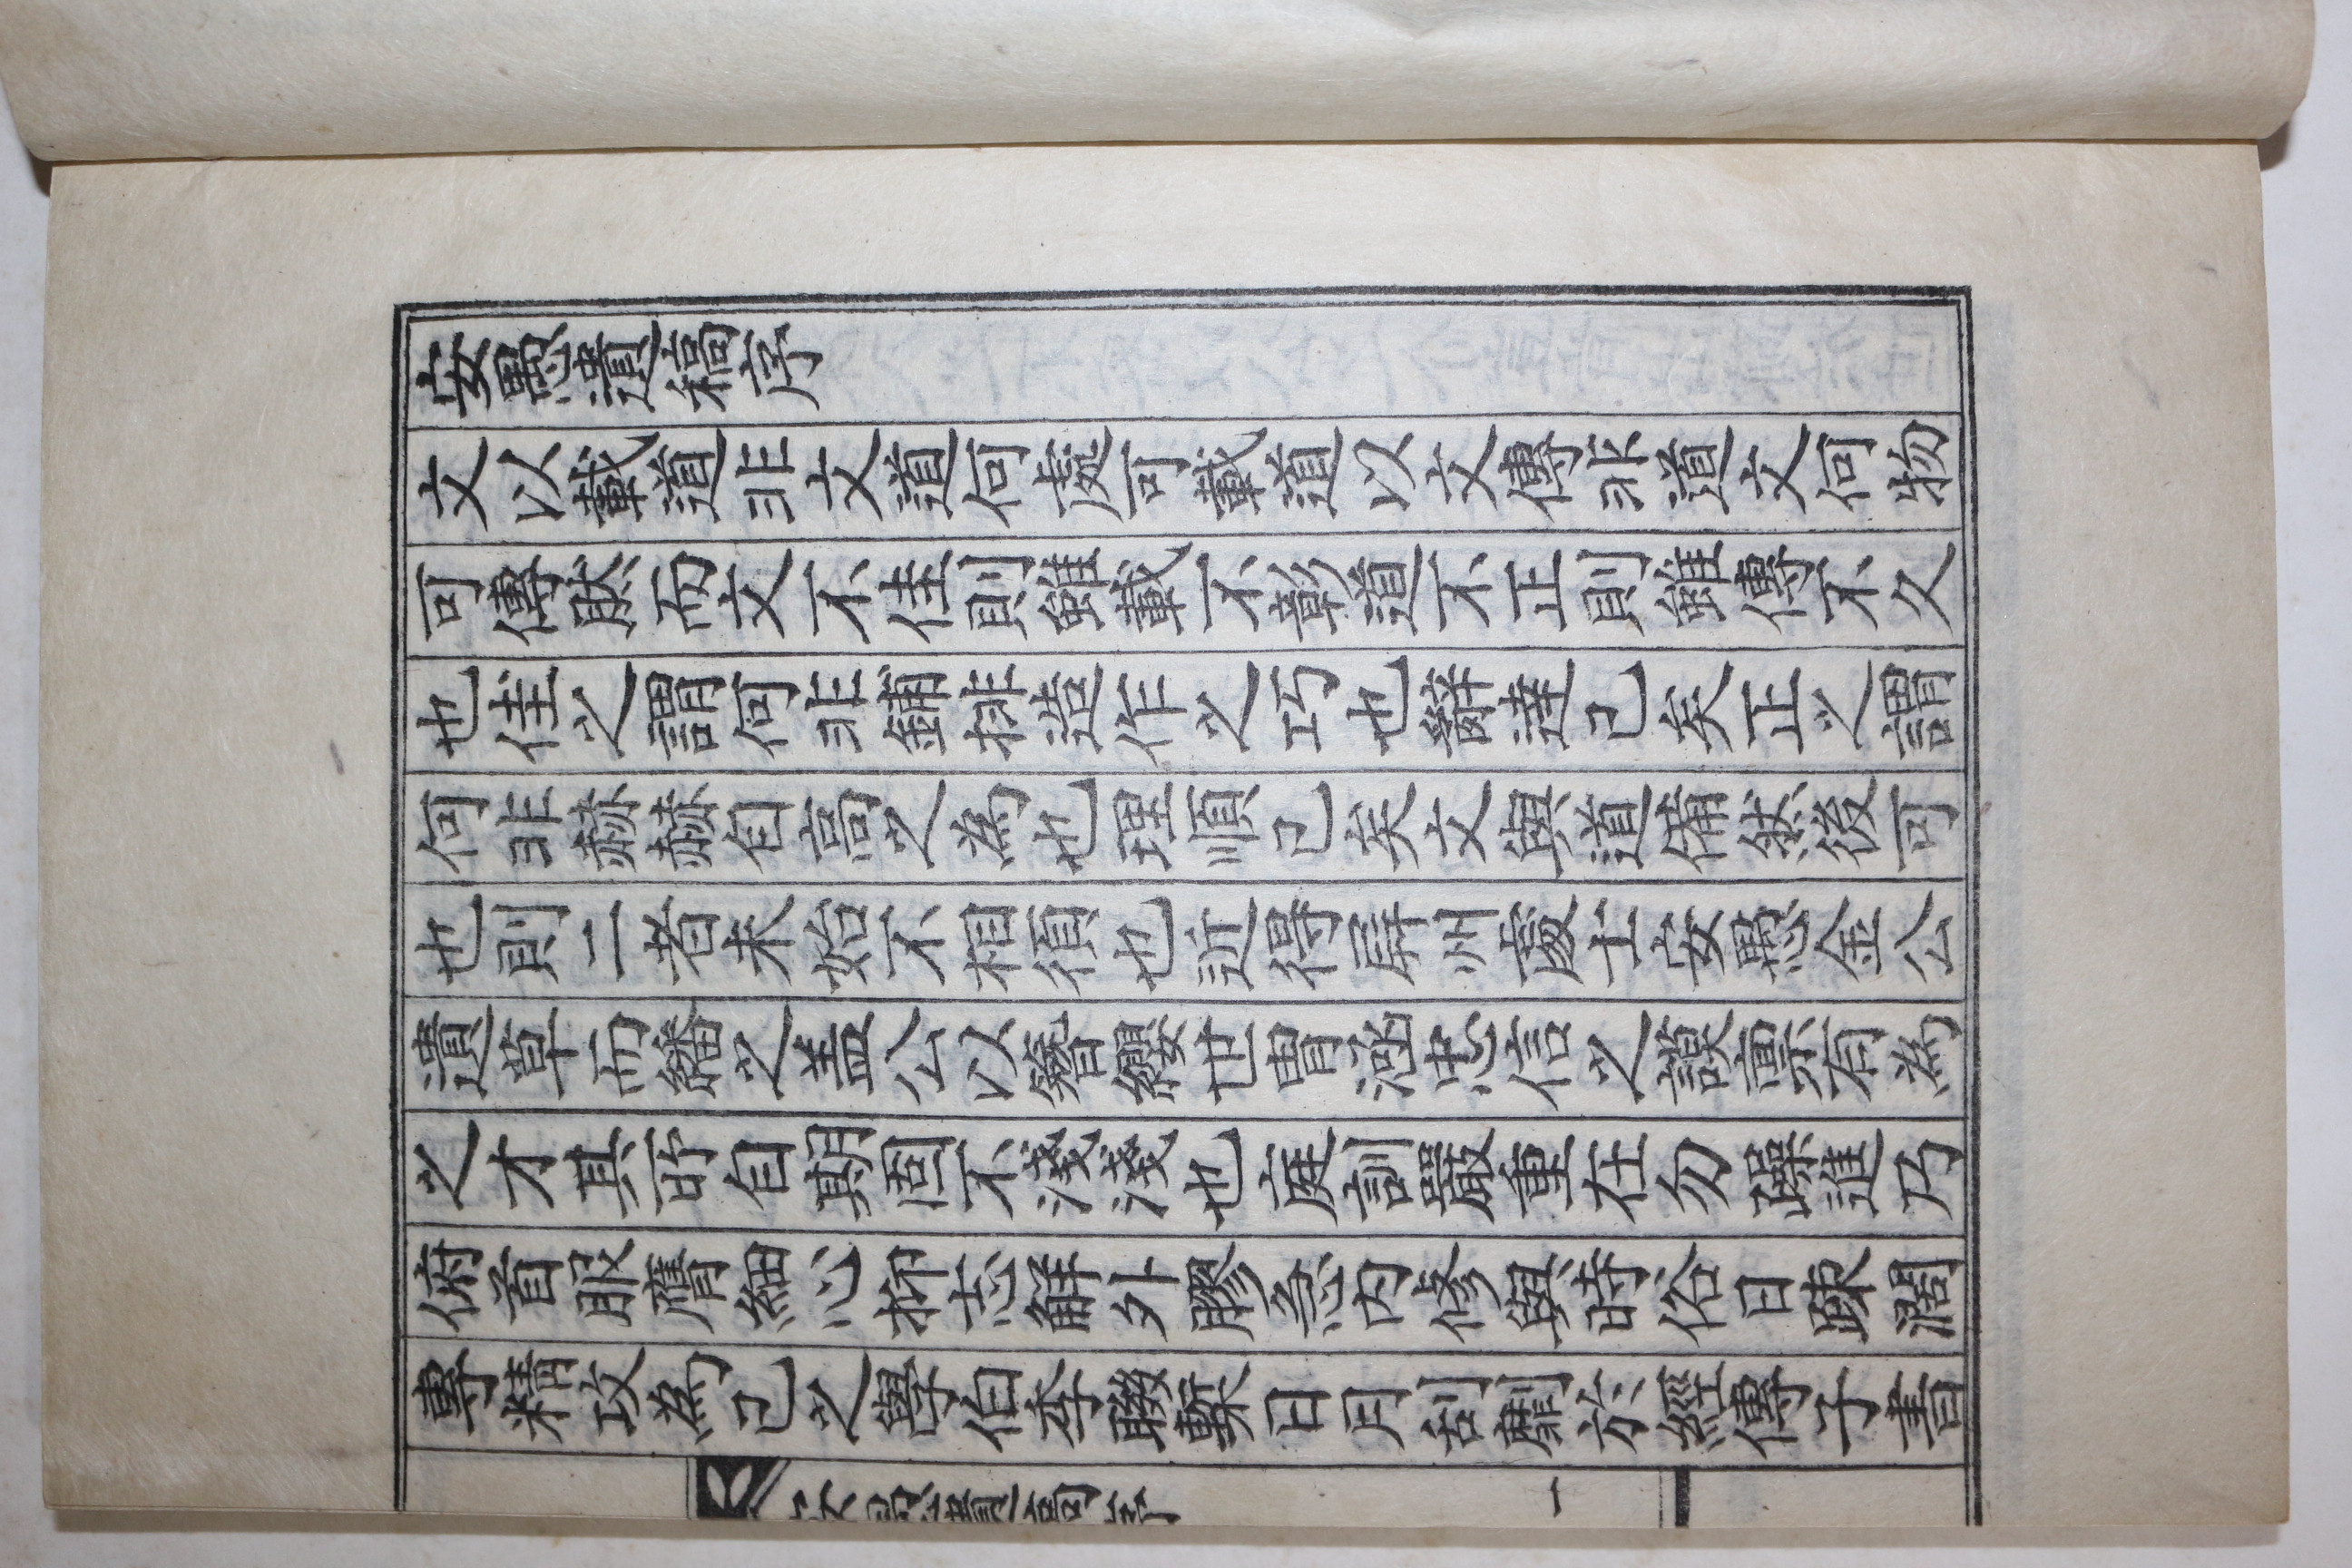 安黙遺稿序
文以載道非文道何處可載道以文傳非道文何物
可傳然而文不佳則雖載不彰道不正則雖傳不久
也佳之謂何非鋪排造作之巧也辭達已矣正之謂
何非赫赫自高之為也理順已矣文與道備然後可
也則二者未始不相須也近得屏州處士安黙金公
遺草而繙之盖公以簪纓世胄沕忠信之謨稟有為
之才其所自期固不淺淺也庭訓嚴重在勿躁進乃
俯首服膺細心抑志解外膠急內修與時俗日踈濶
專精攻為己之學伯季聯槧日月刮劘於經傳子書
安黙遺稿序 一